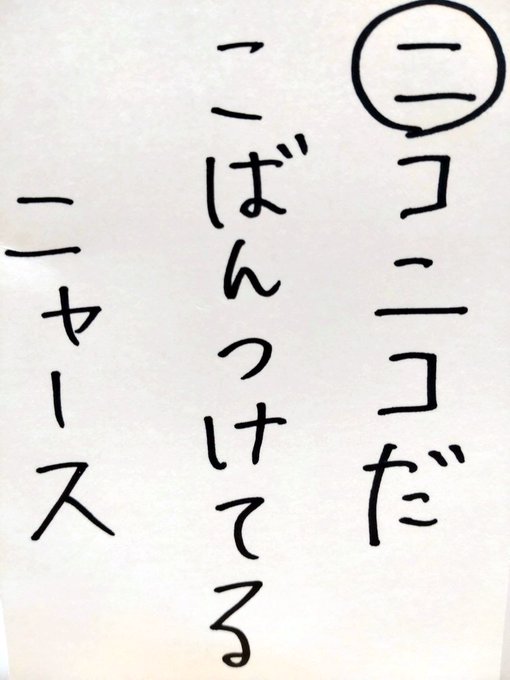 ニコニコだ
こばんつけてる
ニャース